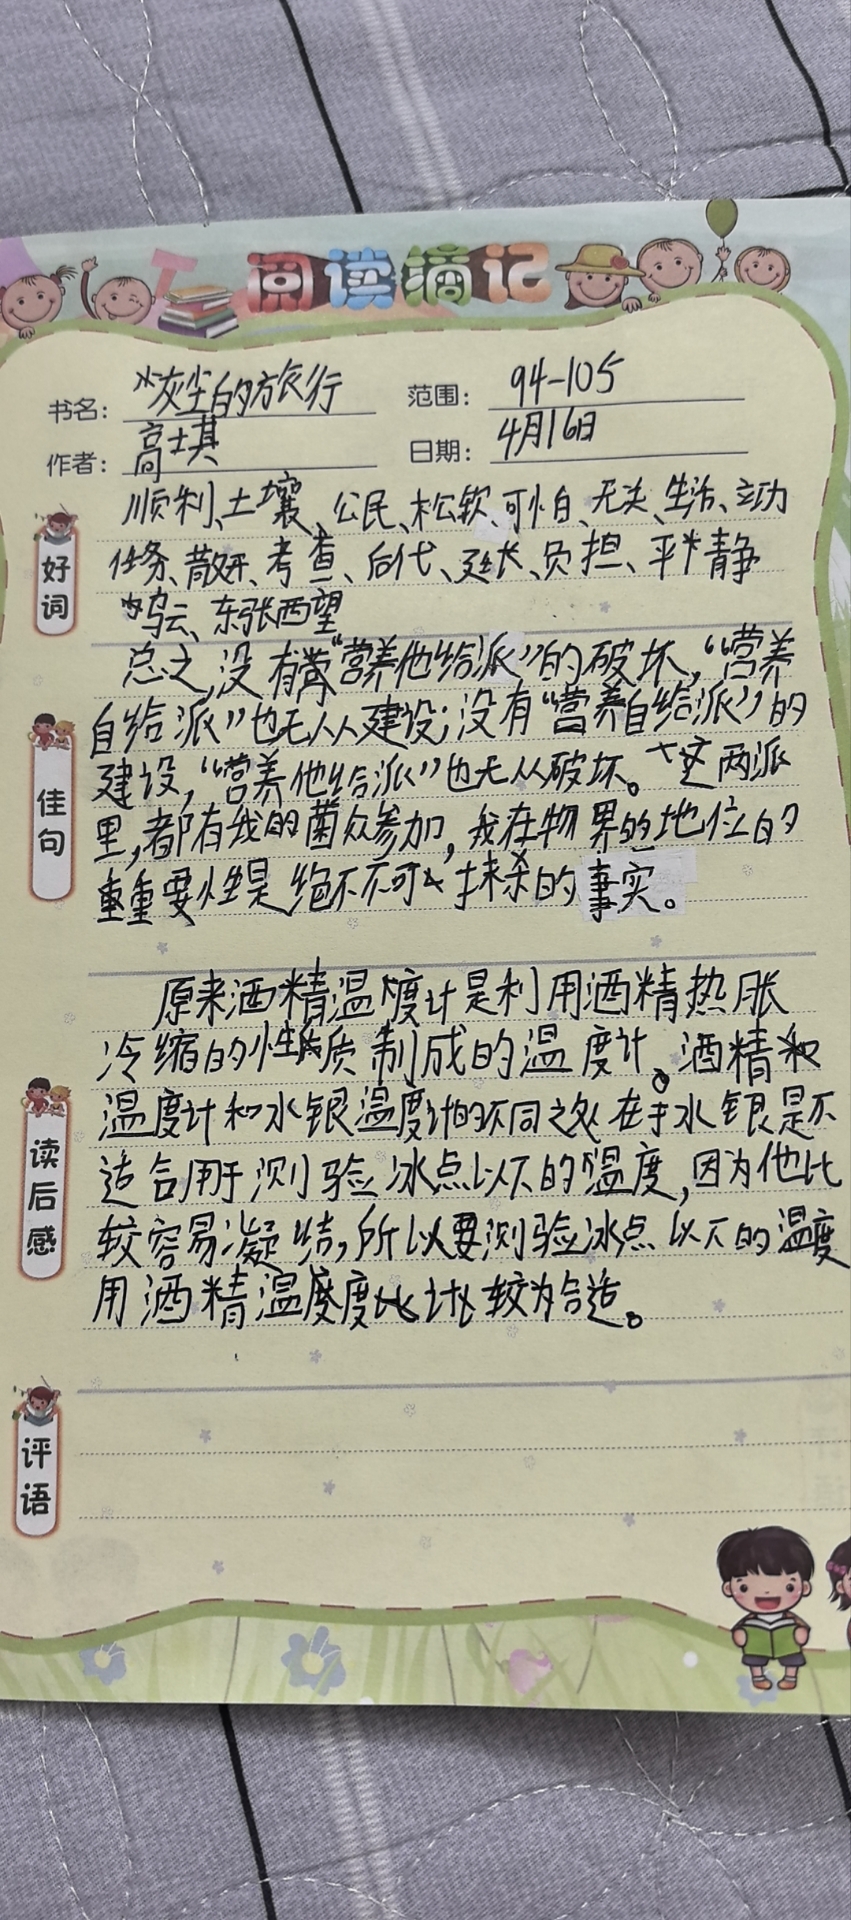 阅读摘记
书名：灰尘的旅行 范围：94-105
作者：高士其 日期：4月16日
好词
顺利、土壤、公民、松软、可怕、无关、生活、立功
任务、散开、考查、后代、延长、负担、平静
乌云、东张西望
佳句
总之，没有“营养他给派”的破坏，“营养
自给派”也无从建设；没有“营养自给派”的
建设，“营养他给派”也无从破坏。这两派
里，都有我的菌众参加，我在物界的地位的
重要性是绝不可抹杀的事实。
读后感
原来酒精温度计是利用酒精热胀
冷缩的性质制成的温度计。酒精和
温度计和水银温度计的不同之处在于水银是不
适合用于测验冰点以下的温度，因为他比
较容易凝结，所以要测验冰点以下的温度
用酒精温度计比较为合适。
评语